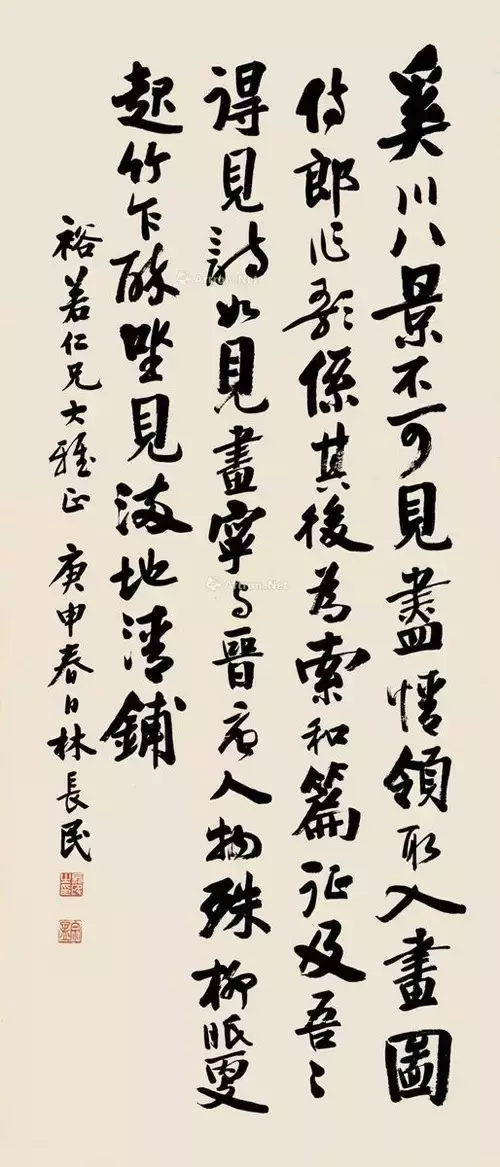 奚川八景不可見盡情領取入畫圖
侍郎作歌係其後為索和篇証及吾〻
得見詩如見畫寧与晉唐人物殊柳眠更
起竹乍醉坐見滿地清鋪
裕若仁兄大雅正 庚申春日林長民
Artron.Net
Artron.Net